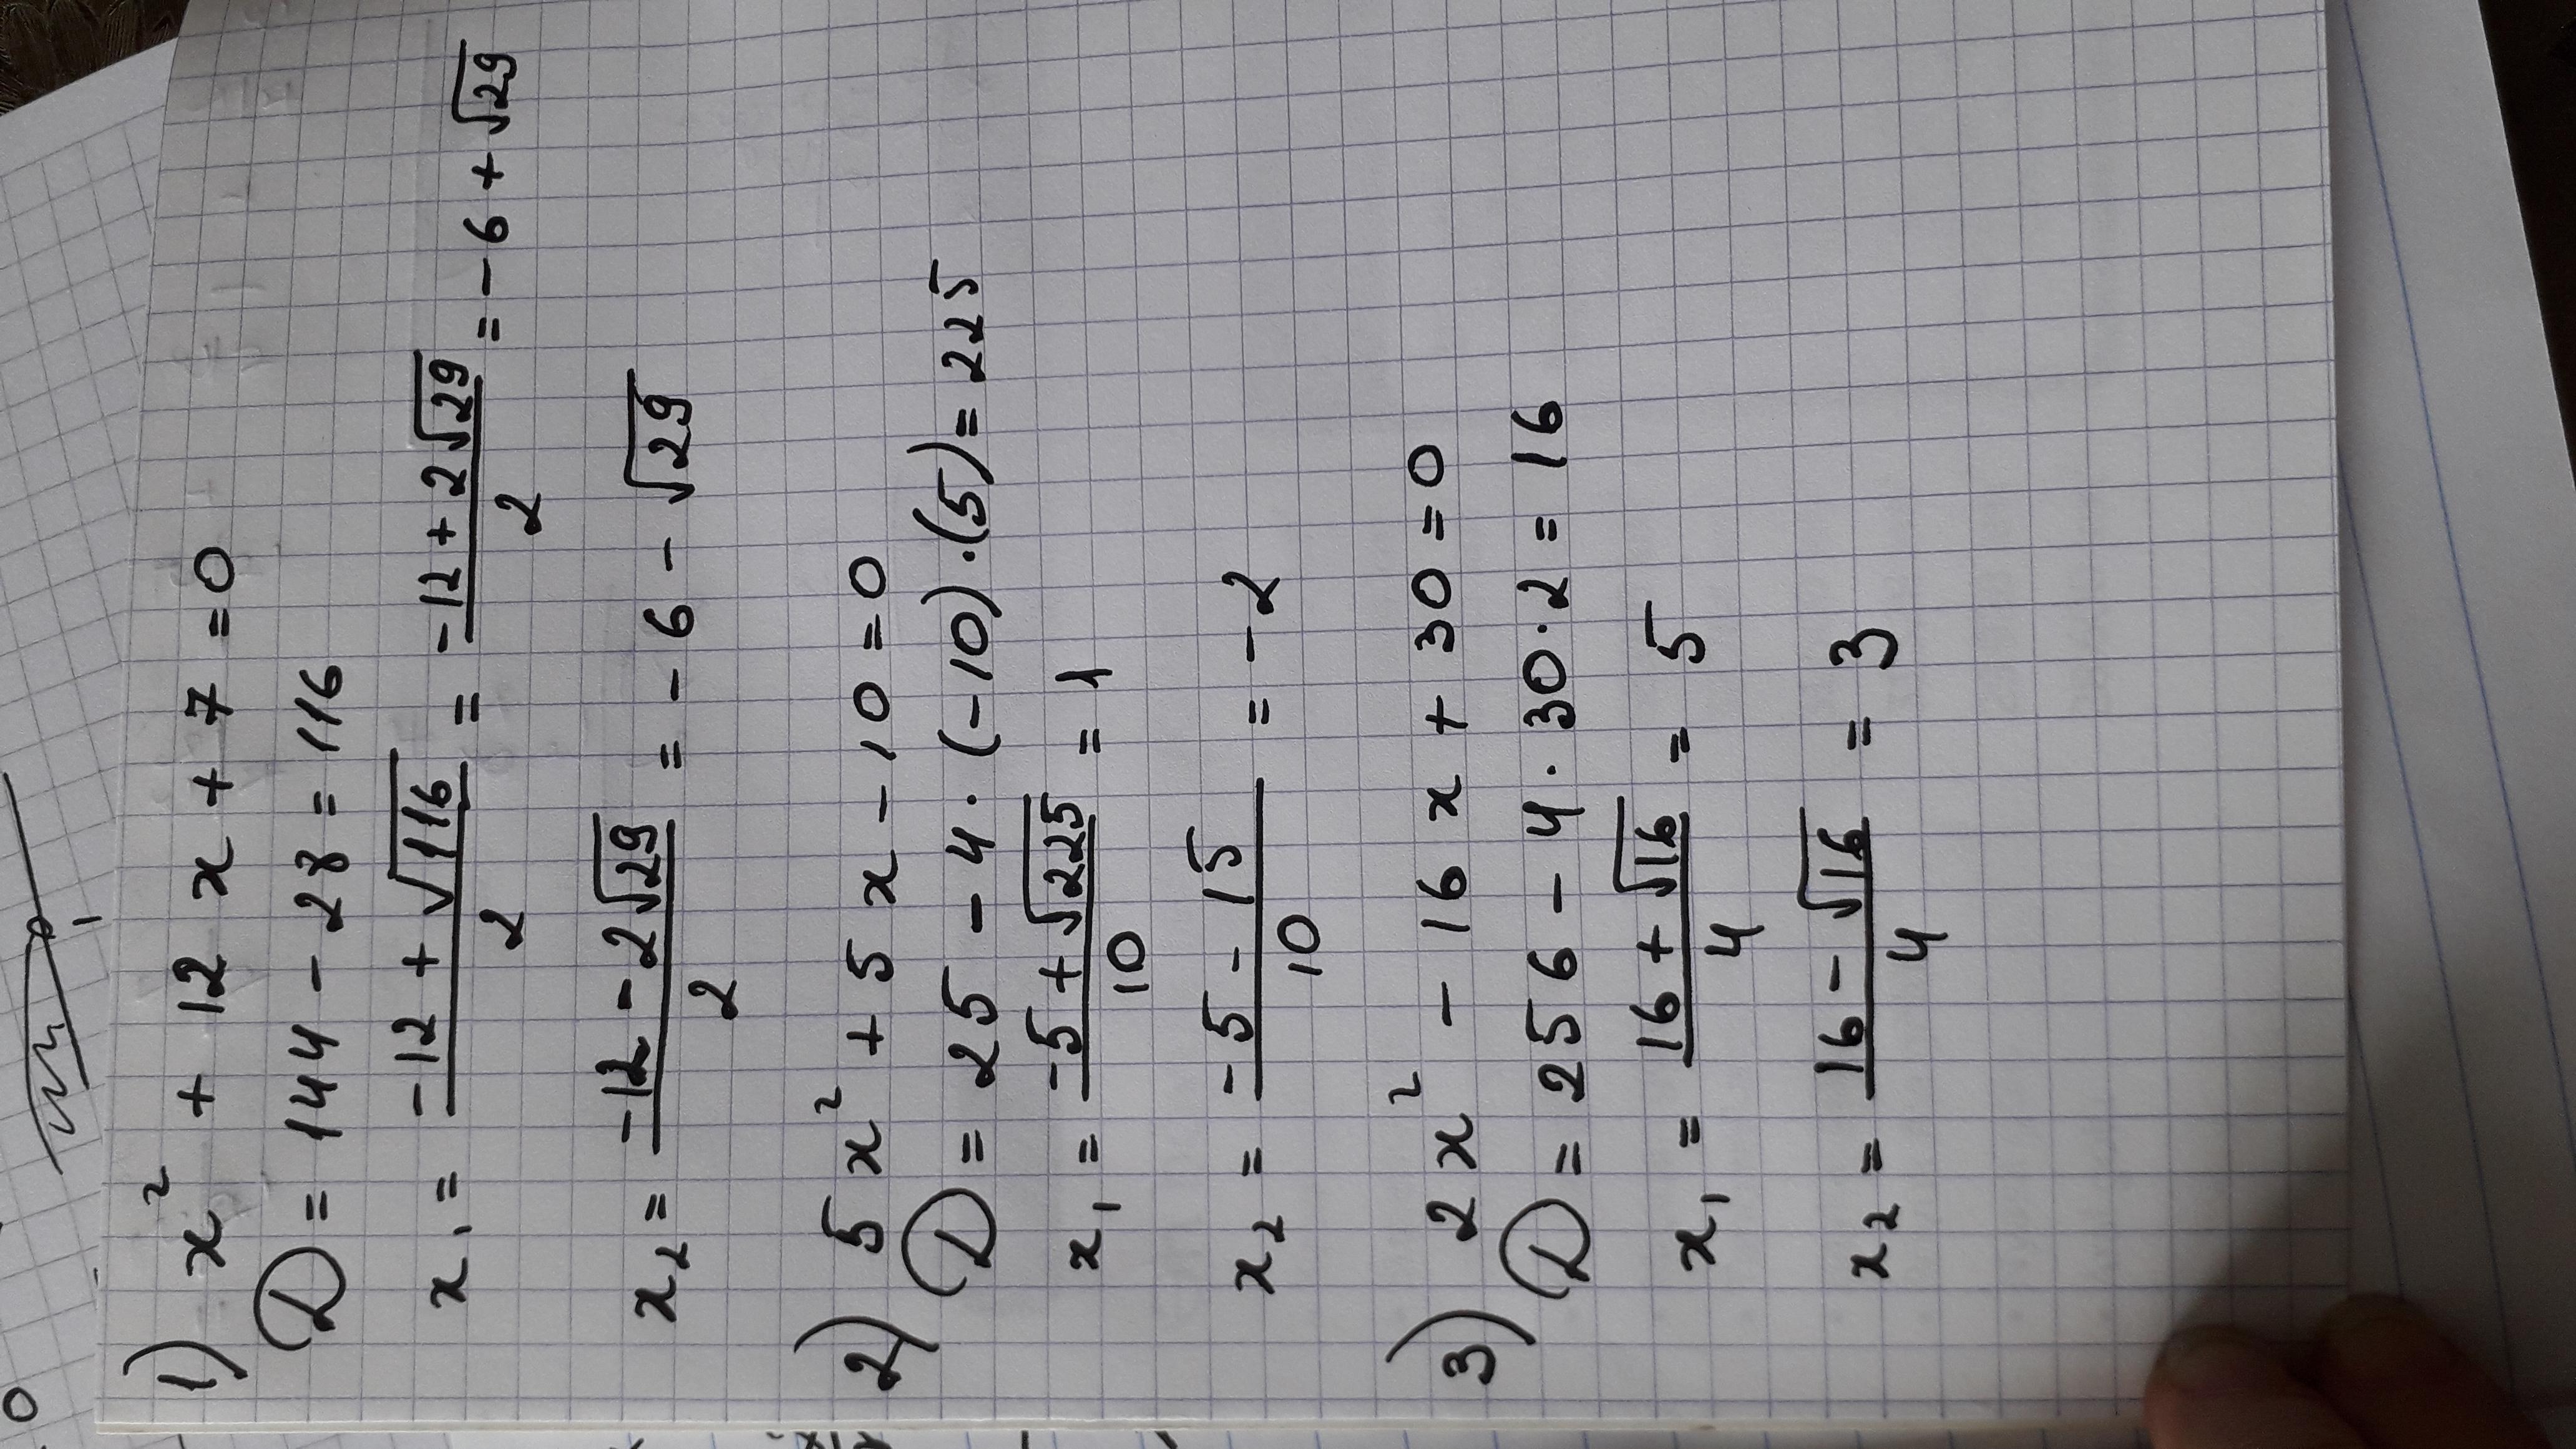 1) x² + 12x + 7 = 0
D = 144 - 28 = 116
x₁ = (-12 + √116)/2 = (-12 + 2√29)/2 = -6 + √29
x₂ = (-12 - 2√29)/2 = -6 - √29
2) 5x² + 5x - 10 = 0
D = 25 - 4·(-10)·(5) = 225
x₁ = (-5 + √225)/10 = 1
x₂ = (-5 - 15)/10 = -2
3) 2x² - 16x + 30 = 0
D = 256 - 4·30·2 = 16
x₁ = (16 + √16)/4 = 5
x₂ = (16 - √16)/4 = 3